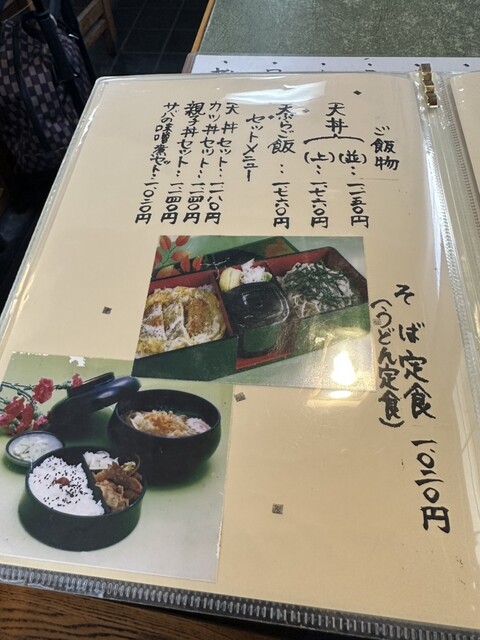 ご飯物
天丼 (並)…一、一五〇円
(上)…一、七六〇円
天ぷらご飯…一、七六〇円
セットメニュー
天丼セット…一、一八〇円
カツ丼セット…一、一四〇円
親子丼セット…一、一四〇円
サバの味噌煮セット…一、〇二〇円
そば定食 一、〇二〇円
(うどん定食)